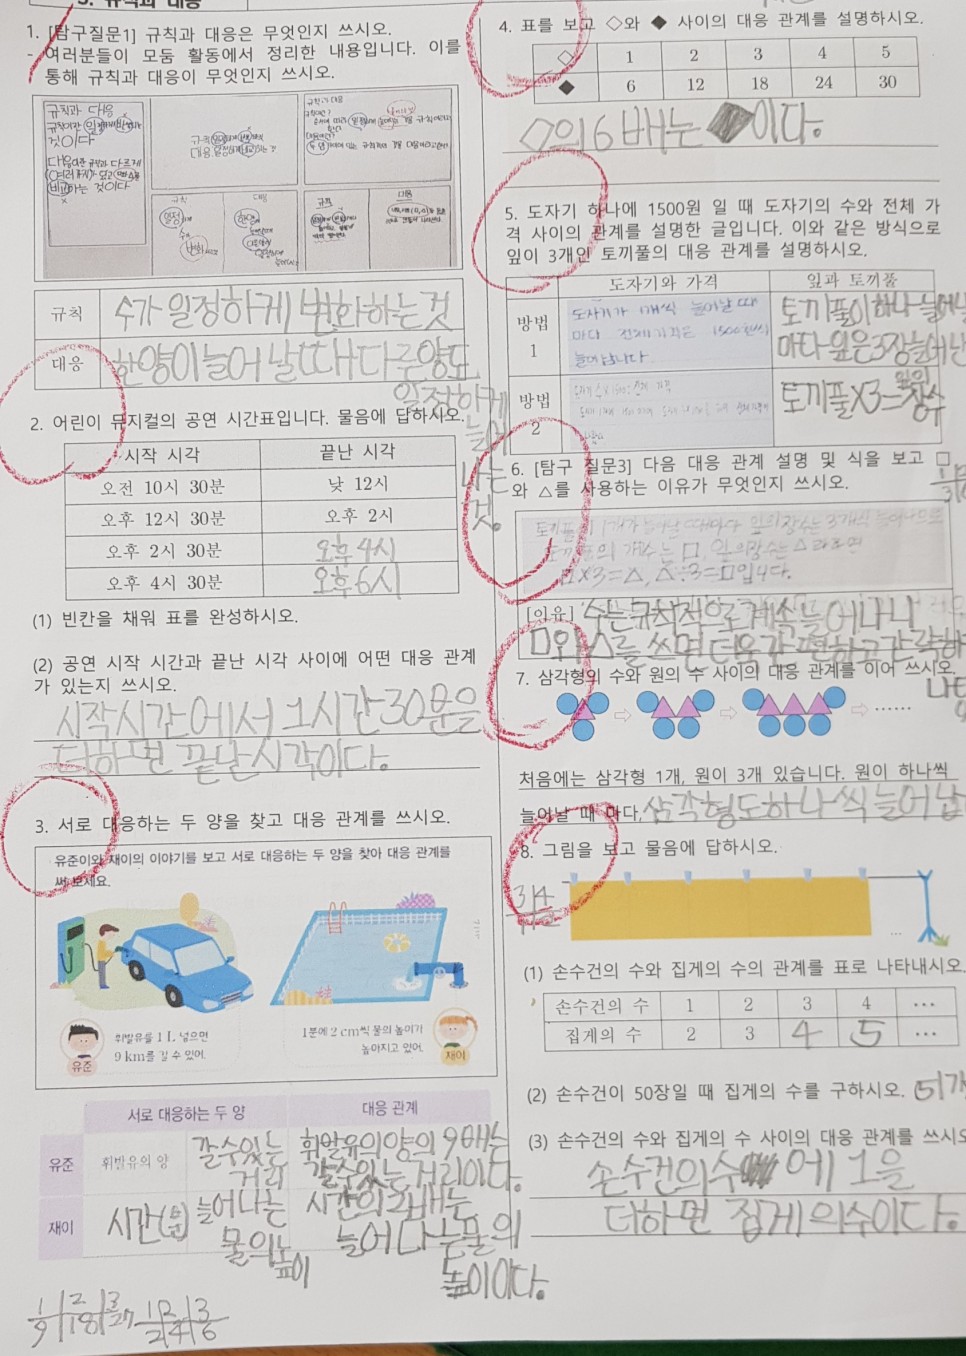 3. 규칙과 대응
1. [탐구질문1] 규칙과 대응은 무엇인지 쓰시오.
- 여러분들이 모둠 활동에서 정리한 내용입니다. 이를
통해 규칙과 대응이 무엇인지 쓰시오.
규칙과 대응
규칙이란 일정하게 변하는
것이다
규칙 대응
규칙 수가 일정하게 변화하는 것
대응 한양이 늘어 날때 다른양도
일정하게
늘어
나는
것.
2. 어린이 뮤지컬의 공연 시간표입니다. 물음에 답하시오.
시작 시각 끝난 시각
오전 10시 30분 낮 12시
오후 12시 30분 오후 2시
오후 2시 30분 오후 4시
오후 4시 30분 오후 6시
(1) 빈칸을 채워 표를 완성하시오.
(2) 공연 시작 시간과 끝난 시각 사이에 어떤 대응 관계
가 있는지 쓰시오.
시작시간에서 1시간30분을
더하면 끝난시각이다.
3. 서로 대응하는 두 양을 찾고 대응 관계를 쓰시오.
유준이와 재이의 이야기를 보고 서로 대응하는 두 양을 찾아 대응 관계를
써 보세요.
휘발유를 1 L 넣으면
9 km를 갈 수 있어.
유준
1분에 2 cm씩 물의 높이가
높아지고 있어.
재이
서로 대응하는 두 양 대응 관계
유준 휘발유의 양 갈수있는 거리 휘발유의양의 9배는
갈수있는 거리이다.
재이 시간(분) 늘어나는 물의높이 시간의 2배는
늘어나는물의
높이이다.
1 2 3
9 18 27
1 2 3
2 4 6
4. 표를 보고 ◇와 ◆ 사이의 대응 관계를 설명하시오.
◇ 1 2 3 4 5
◆ 6 12 18 24 30
◇의 6배는 ◆이다.
5. 도자기 하나에 1500원 일 때 도자기의 수와 전체 가
격 사이의 관계를 설명한 글입니다. 이와 같은 방식으로
잎이 3개인 토끼풀의 대응 관계를 설명하시오.
도자기와 가격 잎과 토끼풀
방법 1 도자기가 1개씩 늘어날 때
마다 전체가격은 1500원씩
늘어납니다.
토끼풀이하나 늘어날
마다 잎은3장늘어난
방법 2
토끼풀×3=잎의 장수
6. [탐구 질문3] 다음 대응 관계 설명 및 식을 보고 □
와 △를 사용하는 이유가 무엇인지 쓰시오.
토끼풀이 1개가 늘어날 때마다 잎의장수는 3개씩 늘어나므로
토끼풀의 개수는 □, 잎의장수는 △라하면
□×3=△, △÷3=□입니다.
[이유] 수는규칙적으로계속늘어나니
□와 △를 쓰면 더욱 간편하고간략하
7. 삼각형의 수와 원의 수 사이의 대응 관계를 이어 쓰시오.
⇨ ⇨ ⇨ ……
처음에는 삼각형 1개, 원이 3개 있습니다. 원이 하나씩
늘어날 때 마다, 삼각형도하나씩 늘어납
8. 그림을 보고 물음에 답하시오.
(1) 손수건의 수와 집게의 수의 관계를 표로 나타내시오.
손수건의 수 1 2 3 4 …
집게의 수 2 3 4 5 …
(2) 손수건이 50장일 때 집게의 수를 구하시오. 51개
(3) 손수건의 수와 집게의 수 사이의 대응 관계를 쓰시오
손수건의수에 1을
더하면 집게의수이다.